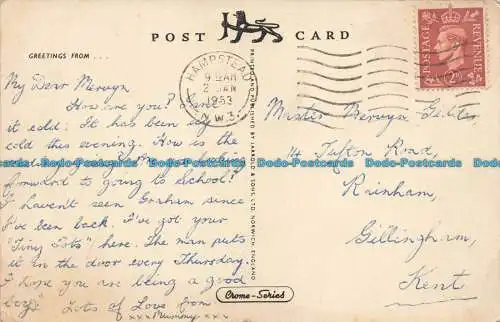 POST CARD
GREETINGS FROM ...
HAMPSTEAD
9. AM
2 JAN
1953
N.W.3.
POSTAGE REVENUE
My Dear Mervyn
How are you?
it cold. It has been very
cold this evening. How is the
forward to going to School?
I haven't seen Graham since
I've been back. I've got your
"Tiny Tots" here. The man puts
it in the door every Thursday.
I hope you are being a good
boy. Lots of Love from
xxx Mummy xxx
Master Mervyn
14 Tufton Road,
Rainham,
Gillingham,
Kent
PRINTED AND PUBLISHED BY JARROLD & SONS LTD. NORWICH, ENGLAND
Crome-Series
Dodo-Postcards Dodo-Postcards Dodo-Postcards Dodo-Postcards Dodo-Postcards